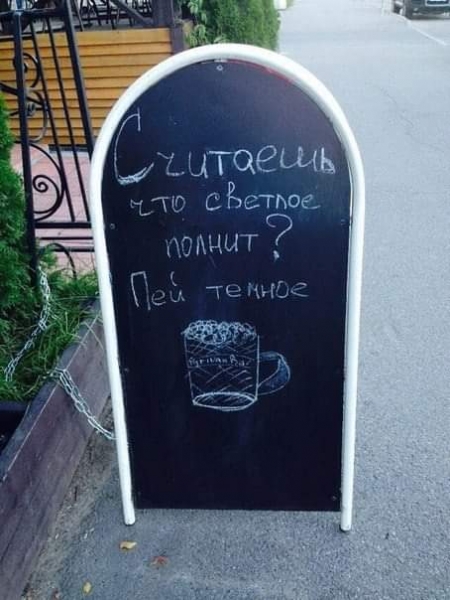 Считаешь
что светлое
полнит?
Пей темное